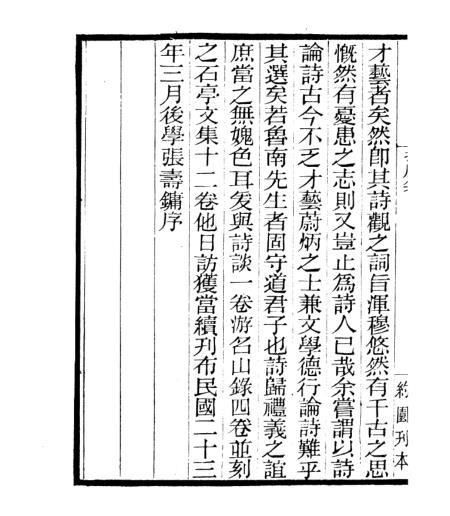 才藝者矣然卽其詩觀之詞旨渾穆悠然有千古之思
慨然有憂患之志則又豈止爲詩人已哉余嘗謂以詩
論詩古今不乏才藝蔚炳之士兼文學德行論詩難乎
其選矣若魯南先生者固守道君子也詩歸禮義之誼
庶當之無媿色耳爰與詩談一卷游名山錄四卷並刻
之石亭文集十二卷他日訪獲當續刊布民國二十三
年三月後學張壽鏞序
約園刊本